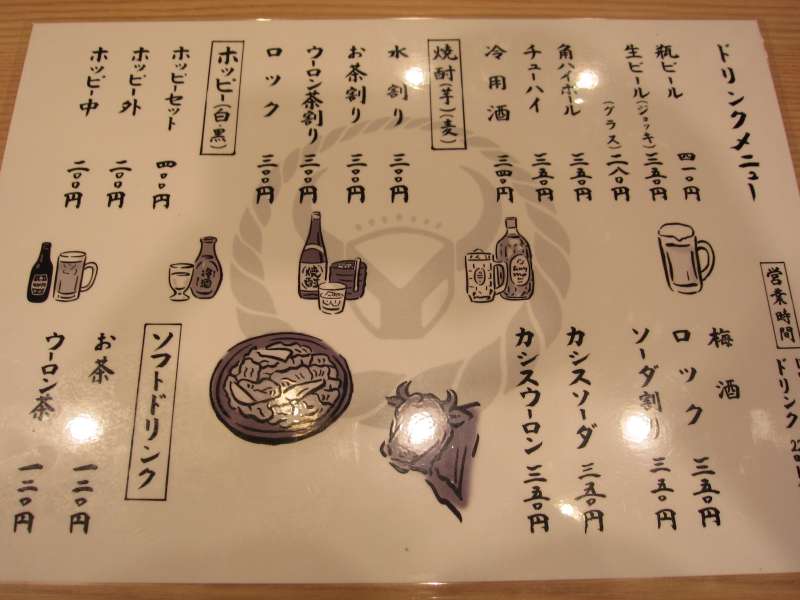 ドリンクメニュー
瓶ビール 四一〇円
生ビール(ジョッキ) 三五〇円
(グラス) 二八〇円
角ハイボール 三五〇円
チューハイ 三五〇円
冷用酒 三四〇円
焼酎(芋)(麦)
水割り 三〇〇円
お茶割り 三〇〇円
ウーロン茶割り 三〇〇円
ロック 三〇〇円
ホッピー(白・黒)
ホッピーセット 四〇〇円
ホッピー外 二〇〇円
ホッピー中 二〇〇円
営業時間
ドリンク
梅酒
ロック 三五〇円
ソーダ割り 三五〇円
カシスソーダ 三五〇円
カシスウーロン 三五〇円
ソフトドリンク
お茶 一二〇円
ウーロン茶 一二〇円
焼酎
冷酒